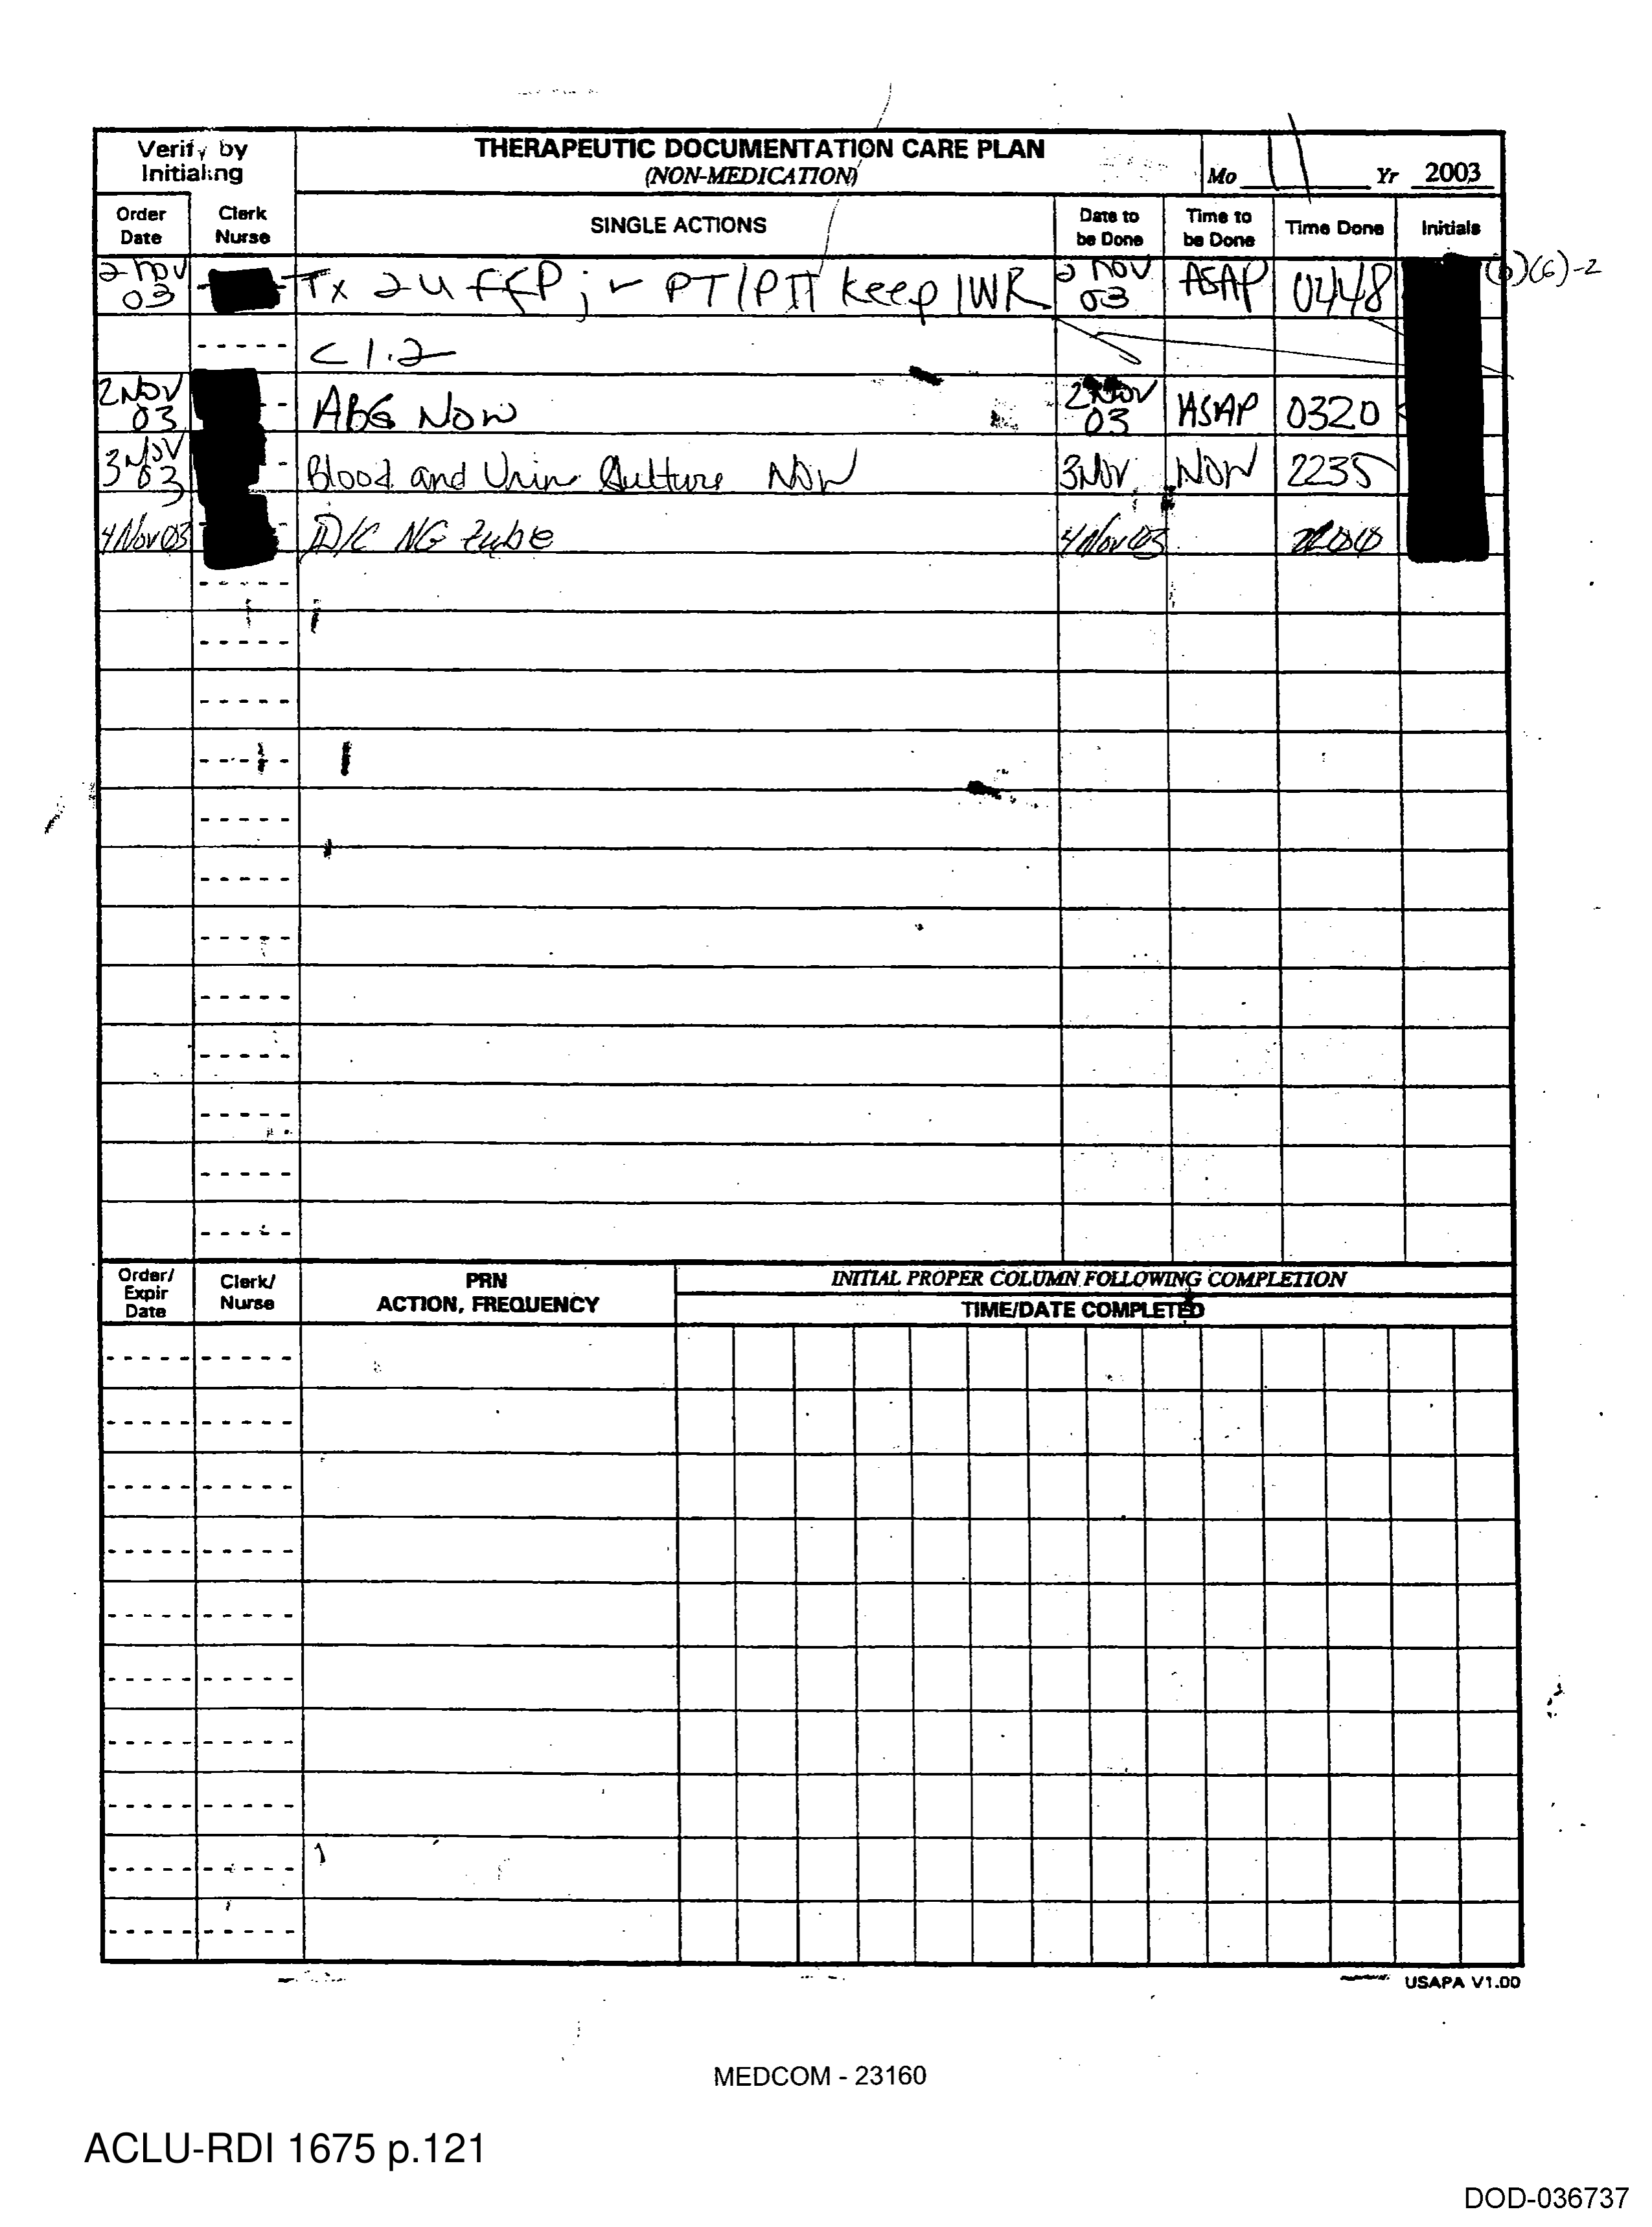 Verify by Initialing
THERAPEUTIC DOCUMENTATION CARE PLAN
(NON-MEDICATION)
Mo 11 Yr 2003
Order Date Clerk Nurse SINGLE ACTIONS Date to be Done Time to be Done Time Done Initials
2 nov 03 Tx 2u FFP; PT/PTT keep INR 2 nov 03 ASAP 0448 (b)(6)-2
< 1.2
2 Nov 03 ABG Now 2 Nov 03 ASAP 0320
3 Nov 03 Blood and Urine Culture NOW 3 Nov NOW 2235
4 Nov 03 D/C NG tube 4 Nov 03
Order/ Expir Date Clerk/ Nurse PRN ACTION, FREQUENCY INITIAL PROPER COLUMN FOLLOWING COMPLETION
TIME/DATE COMPLETED
USAPA V1.00
MEDCOM - 23160
ACLU-RDI 1675 p.121
DOD-036737